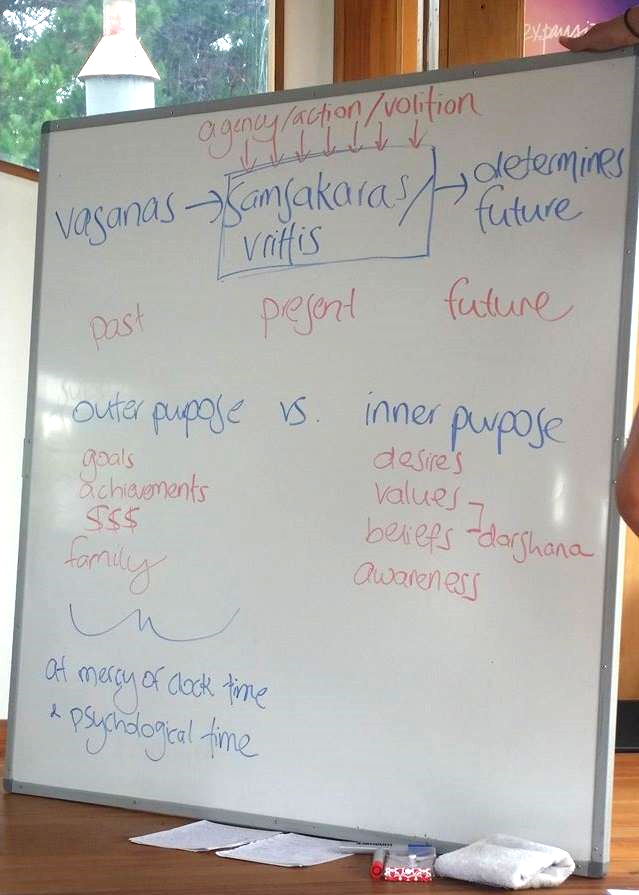 expansi
agency/action/volition
vasanas → samsakaras/ → determines
vrittis future
past present future
outer pupose vs. inner purpose
goals desires
achievements values
$$$ beliefs darshana
family awareness
at mercy of clock time
& psychological time